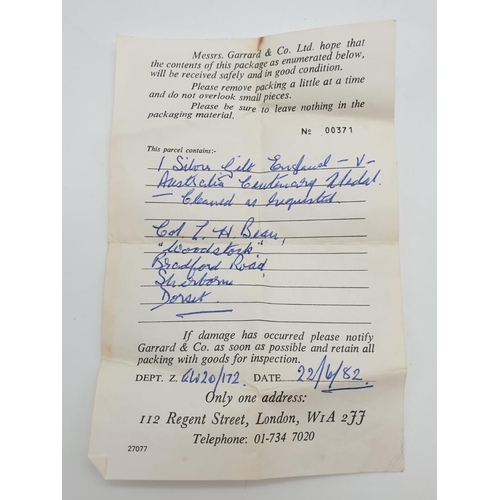 Messrs. Garrard & Co. Ltd. hope that
the contents of this package as enumerated below,
will be received safely and in good condition.
Please remove packing a little at a time
and do not overlook small pieces.
Please be sure to leave nothing in the
packaging material.
No 00371
This parcel contains:-
1 Silver Gilt England - V -
Australia Centenary Medal.
- Cleaned as requested.
Col. L H Bean,
"Woodstock",
Bradford Road,
Sherborne
Dorset.
If damage has occurred please notify
Garrard & Co. as soon as possible and retain all
packing with goods for inspection.
DEPT. Z. GW20/172 DATE 22/6/82
Only one address:
112 Regent Street, London, W1A 2JJ
Telephone: 01-734 7020
27077